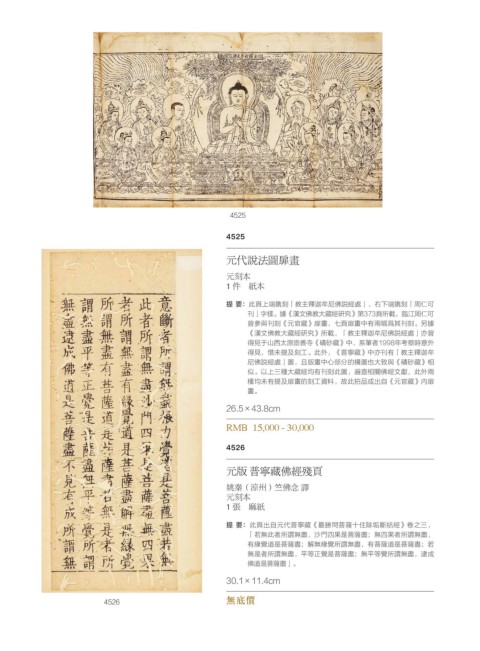 4525
4525
元代說法圖扉畫
元刻本
1 件　紙本
提 要：此頁上端鐫刻「教主釋迦牟尼佛說經處」，右下端鐫刻「周仁可
刊」字樣。據《漢文佛教大藏經研究》第373頁所載，臨江周仁可
曾參與刊刻《元官藏》扉畫，七頁扉畫中有兩幅爲其刊刻。另據
《漢文佛教大藏經研究》所載，「教主釋迦牟尼佛說經處」亦曾
得見于山西太原崇善寺《磧砂藏》中，系筆者1998年考察時意外
得見，惜未提及刻工。此外，《普寧藏》中亦刊有「教主釋迦牟
尼佛說經處」圖，且版畫中心部分的構圖也大致與《磧砂藏》相
似。以上三種大藏經均有刊刻此圖，遍查相關佛經文獻，此外兩
種均未有提及扉畫的刻工資料，故此拍品或出自《元官藏》內扉
畫。
26.5 × 43.8cm
RMB 15,000 - 30,000
4526
元版 普寧藏佛經殘頁
姚秦（涼州）竺佛念 譯
元刻本
1 張　麻紙
提 要：此頁出自元代普寧藏《最勝問菩薩十住除垢斷結經》卷之三，
「若無此者所謂無盡，沙門四果是菩薩盡；無四果者所謂無盡，
有緣覺道是菩薩盡；解無緣覺所謂無盡，有菩薩道是菩薩盡；若
無是者所謂無盡，平等正覺是菩薩盡；無平等覺所謂無盡，逮成
佛道是菩薩盡」。
30.1 × 11.4cm
無底價
意斷者所謂無盡
此者所謂無盡沙門四果是菩薩盡無四果
者所謂無盡有緣覺道是菩薩盡解無緣覺
所謂無盡有菩薩道是菩薩盡若無是者所
謂無盡平等正覺是菩薩盡無平等覺所謂
無盡逮成佛道是菩薩盡不見有成所謂無
4526